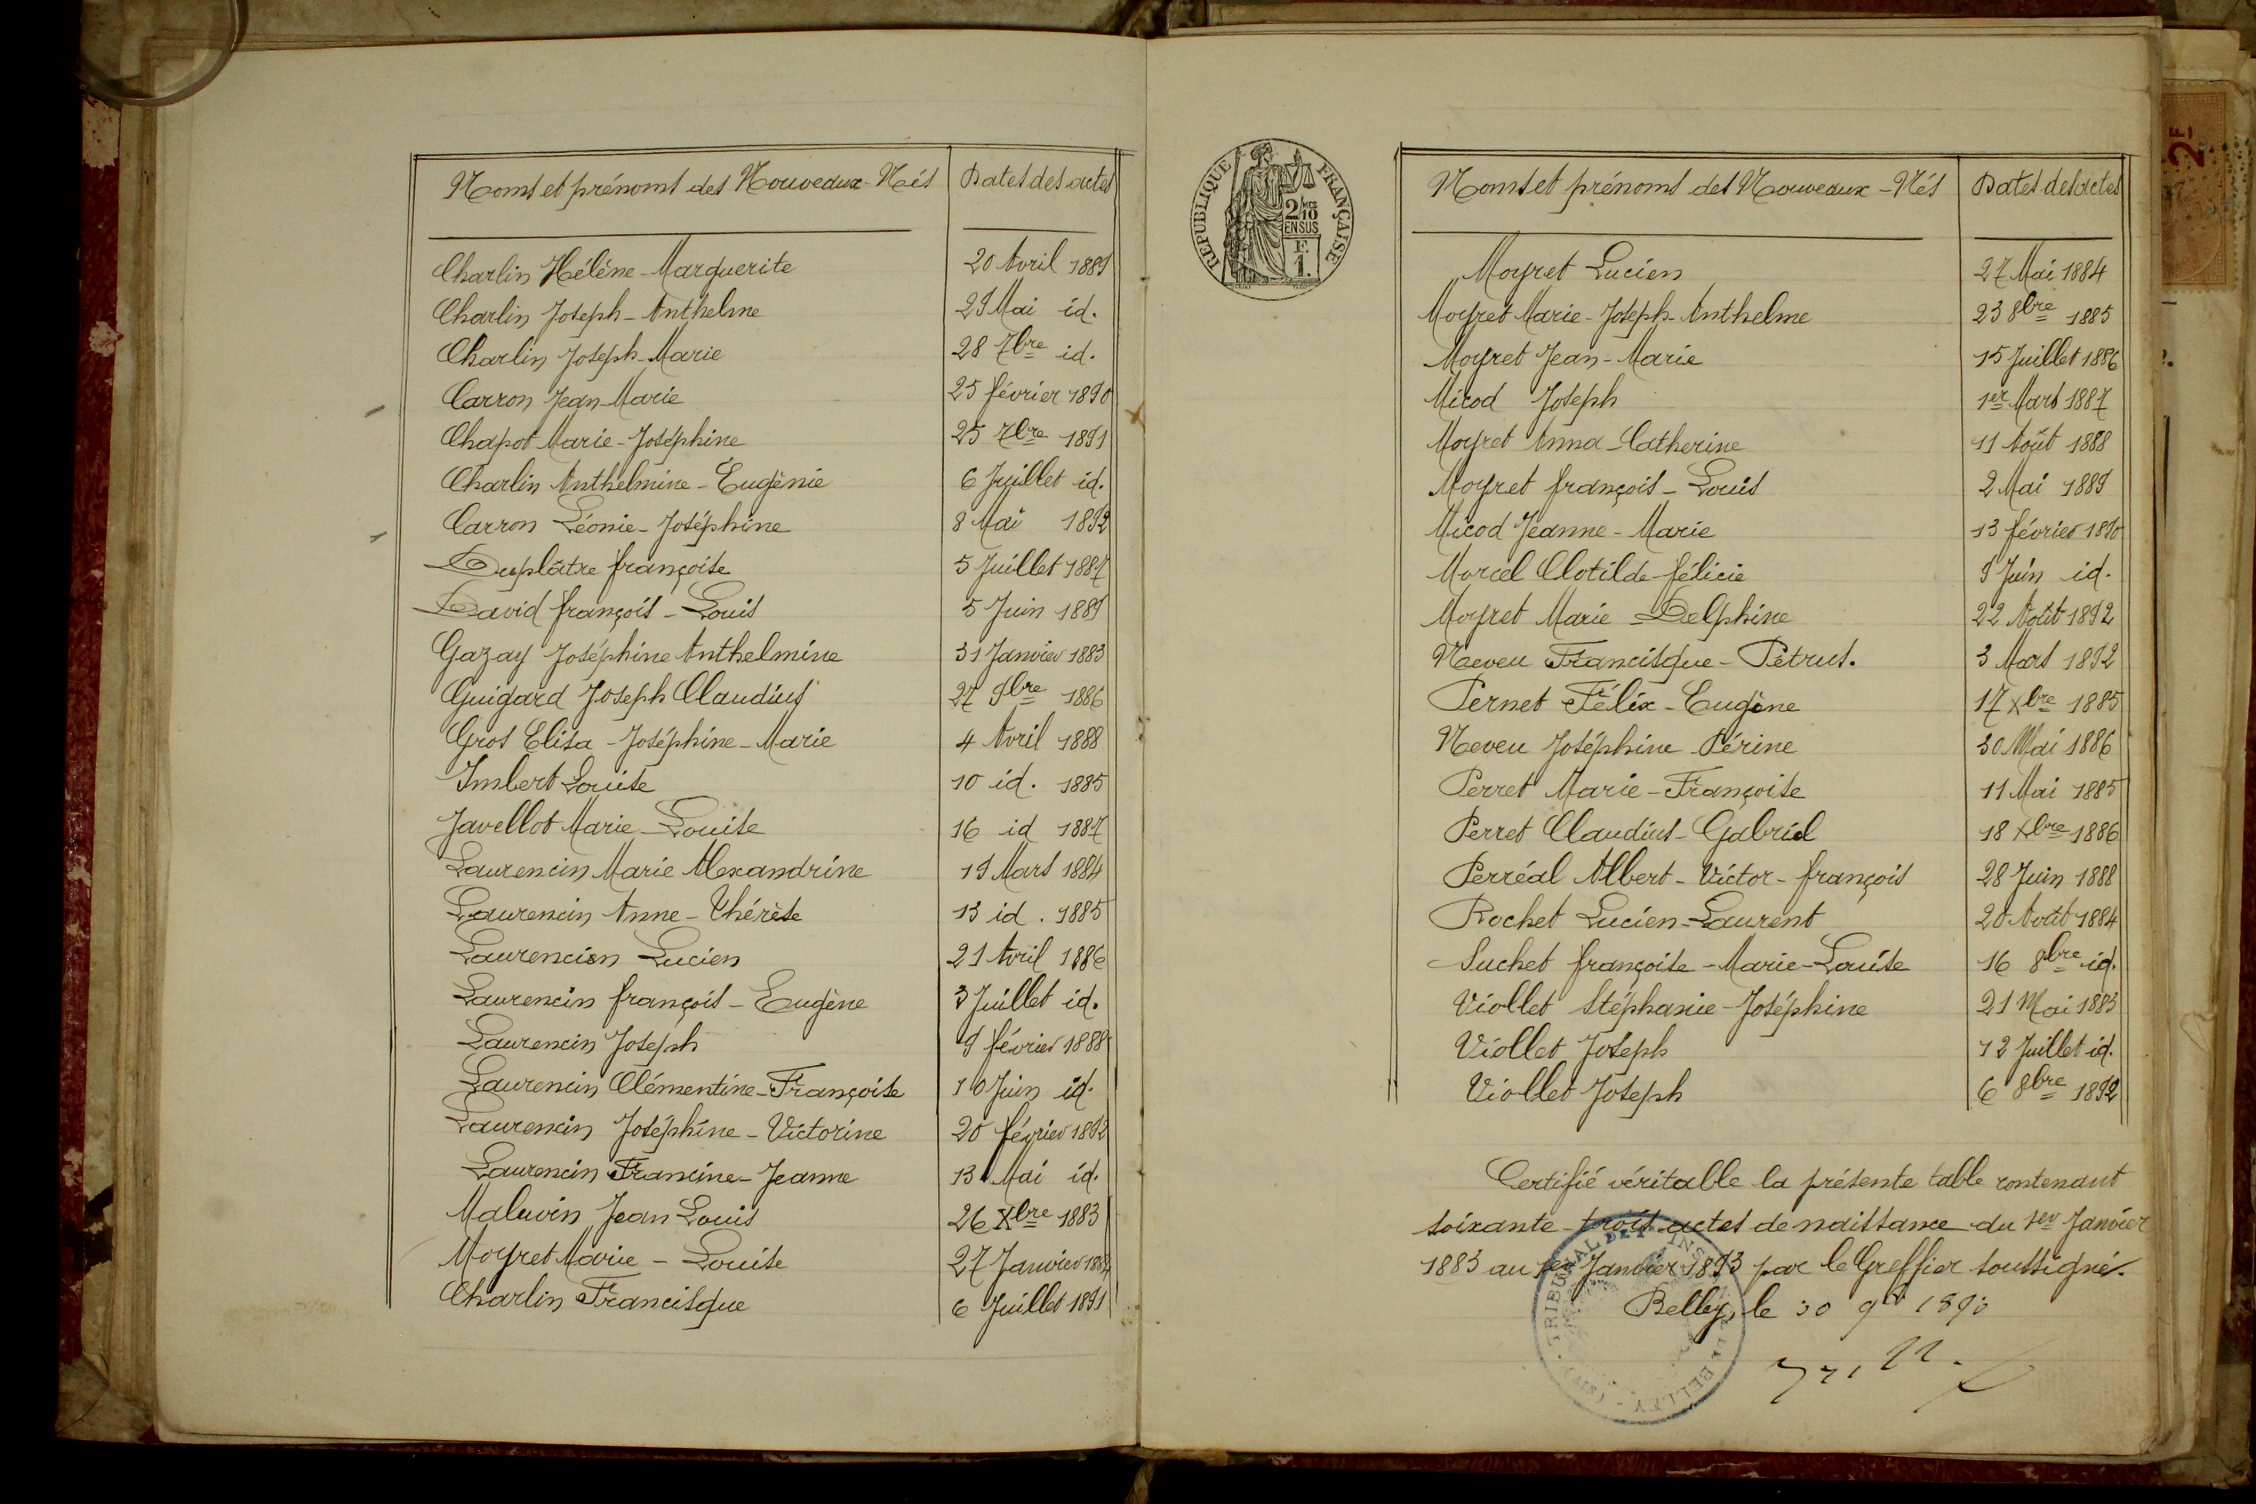 Noms et prénoms des Nouveaux-Nés Dates des actes
Charlin Hélène-Marguerite 20 Avril 1889
Charlin Joseph-Anthelme 29 Mai id.
Charlin Joseph-Marie 28 7bre id.
Carron Jean-Marie 25 février 1890
Chapot Marie-Joséphine 25 7bre 1891
Charlin Anthelmine-Eugénie 6 Juillet id.
Carron Léonie-Joséphine 8 Mai 1892
Duplâtre françoise 5 Juillet 1887
David françois-Louis 5 Juin 1889
Gazay Joséphine Anthelmine 31 Janvier 1883
Guigard Joseph Claudius 27 9bre 1886
Gros Elisa-Joséphine-Marie 4 Avril 1888
Imbert Louise 10 id. 1885
Javellot Marie-Louise 16 id 1887
Laurencin Marie Alexandrine 19 Mars 1884
Laurencin Anne-Thérèse 13 id. 1885
Laurencin Lucien 21 Avril 1886
Laurencin françois-Eugène 3 Juillet id.
Laurencin Joseph 9 février 1888
Laurencin Clémentine-Françoise 10 Juin id.
Laurencin Joséphine-Victorine 20 février 1892
Laurencin Francine-Jeanne 13 Mai id.
Maluvin Jean Louis 26 Xbre 1883
Moyret Marie-Louise 27 Janvier 1884
Charlin Francisque 6 Juillet 1891
REPUBLIQUE FRANÇAISE
2/10 MES
EN SUS
F.
1.
Noms et prénoms des Nouveaux-Nés Dates des actes
Moyret Lucien 27 Mai 1884
Moyret Marie-Joseph-Anthelme 23 8bre 1885
Moyret Jean-Marie 15 Juillet 1886
Micod Joseph 1er Mars 1887
Moyret Anna-Catherine 11 Août 1888
Moyret françois-Louis 2 Mai 1889
Micod Jeanne-Marie 13 février 1890
Morcel Clotilde-félicie 9 Juin id.
Moyret Marie-Delphine 22 Août 1892
Neveu Francisque-Pétrus. 3 Mars 1892
Pernet Félix-Eugène 17 Xbre 1885
Neveu Joséphine Périne 30 Mai 1886
Perret Marie-Françoise 11 Mai 1885
Perret Claudius-Gabriel 18 Xbre 1886
Perréal Albert-Victor-françois 28 Juin 1888
Rochet Lucien-Laurent 20 Août 1884
Suchet françoise-Marie-Louise 16 8bre id.
Viollet Stéphanie-Joséphine 21 Mai 1883
Viollet Joseph 12 Juillet id.
Viollet Joseph 6 8bre 1892
Certifié véritable la présente table contenant
soixante-trois actes de naissance du 1er Janvier
1883 au 1er Janvier 1893 par le Greffier soussigné.
Belley, le 30 9
TRIBUNAL DE
BELLEY
2F